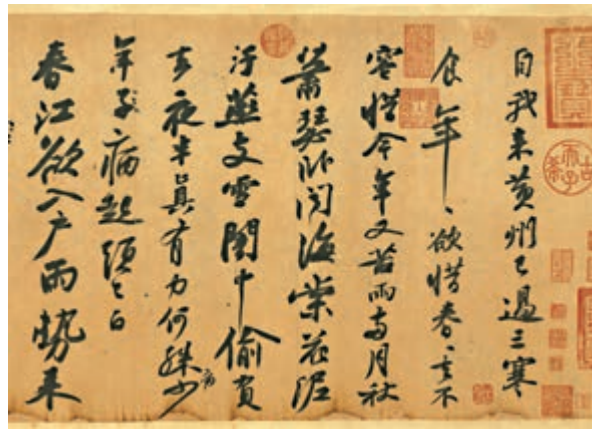 自我來黃州已過三寒
食年〻欲惜春〻去不
容惜今年又苦雨兩月秋
蕭瑟卧聞海棠花泥
汙燕支雪闇中偷負
去夜半真有力何殊少病
年子病起頭已白
春江欲入户雨勢來
古希天子